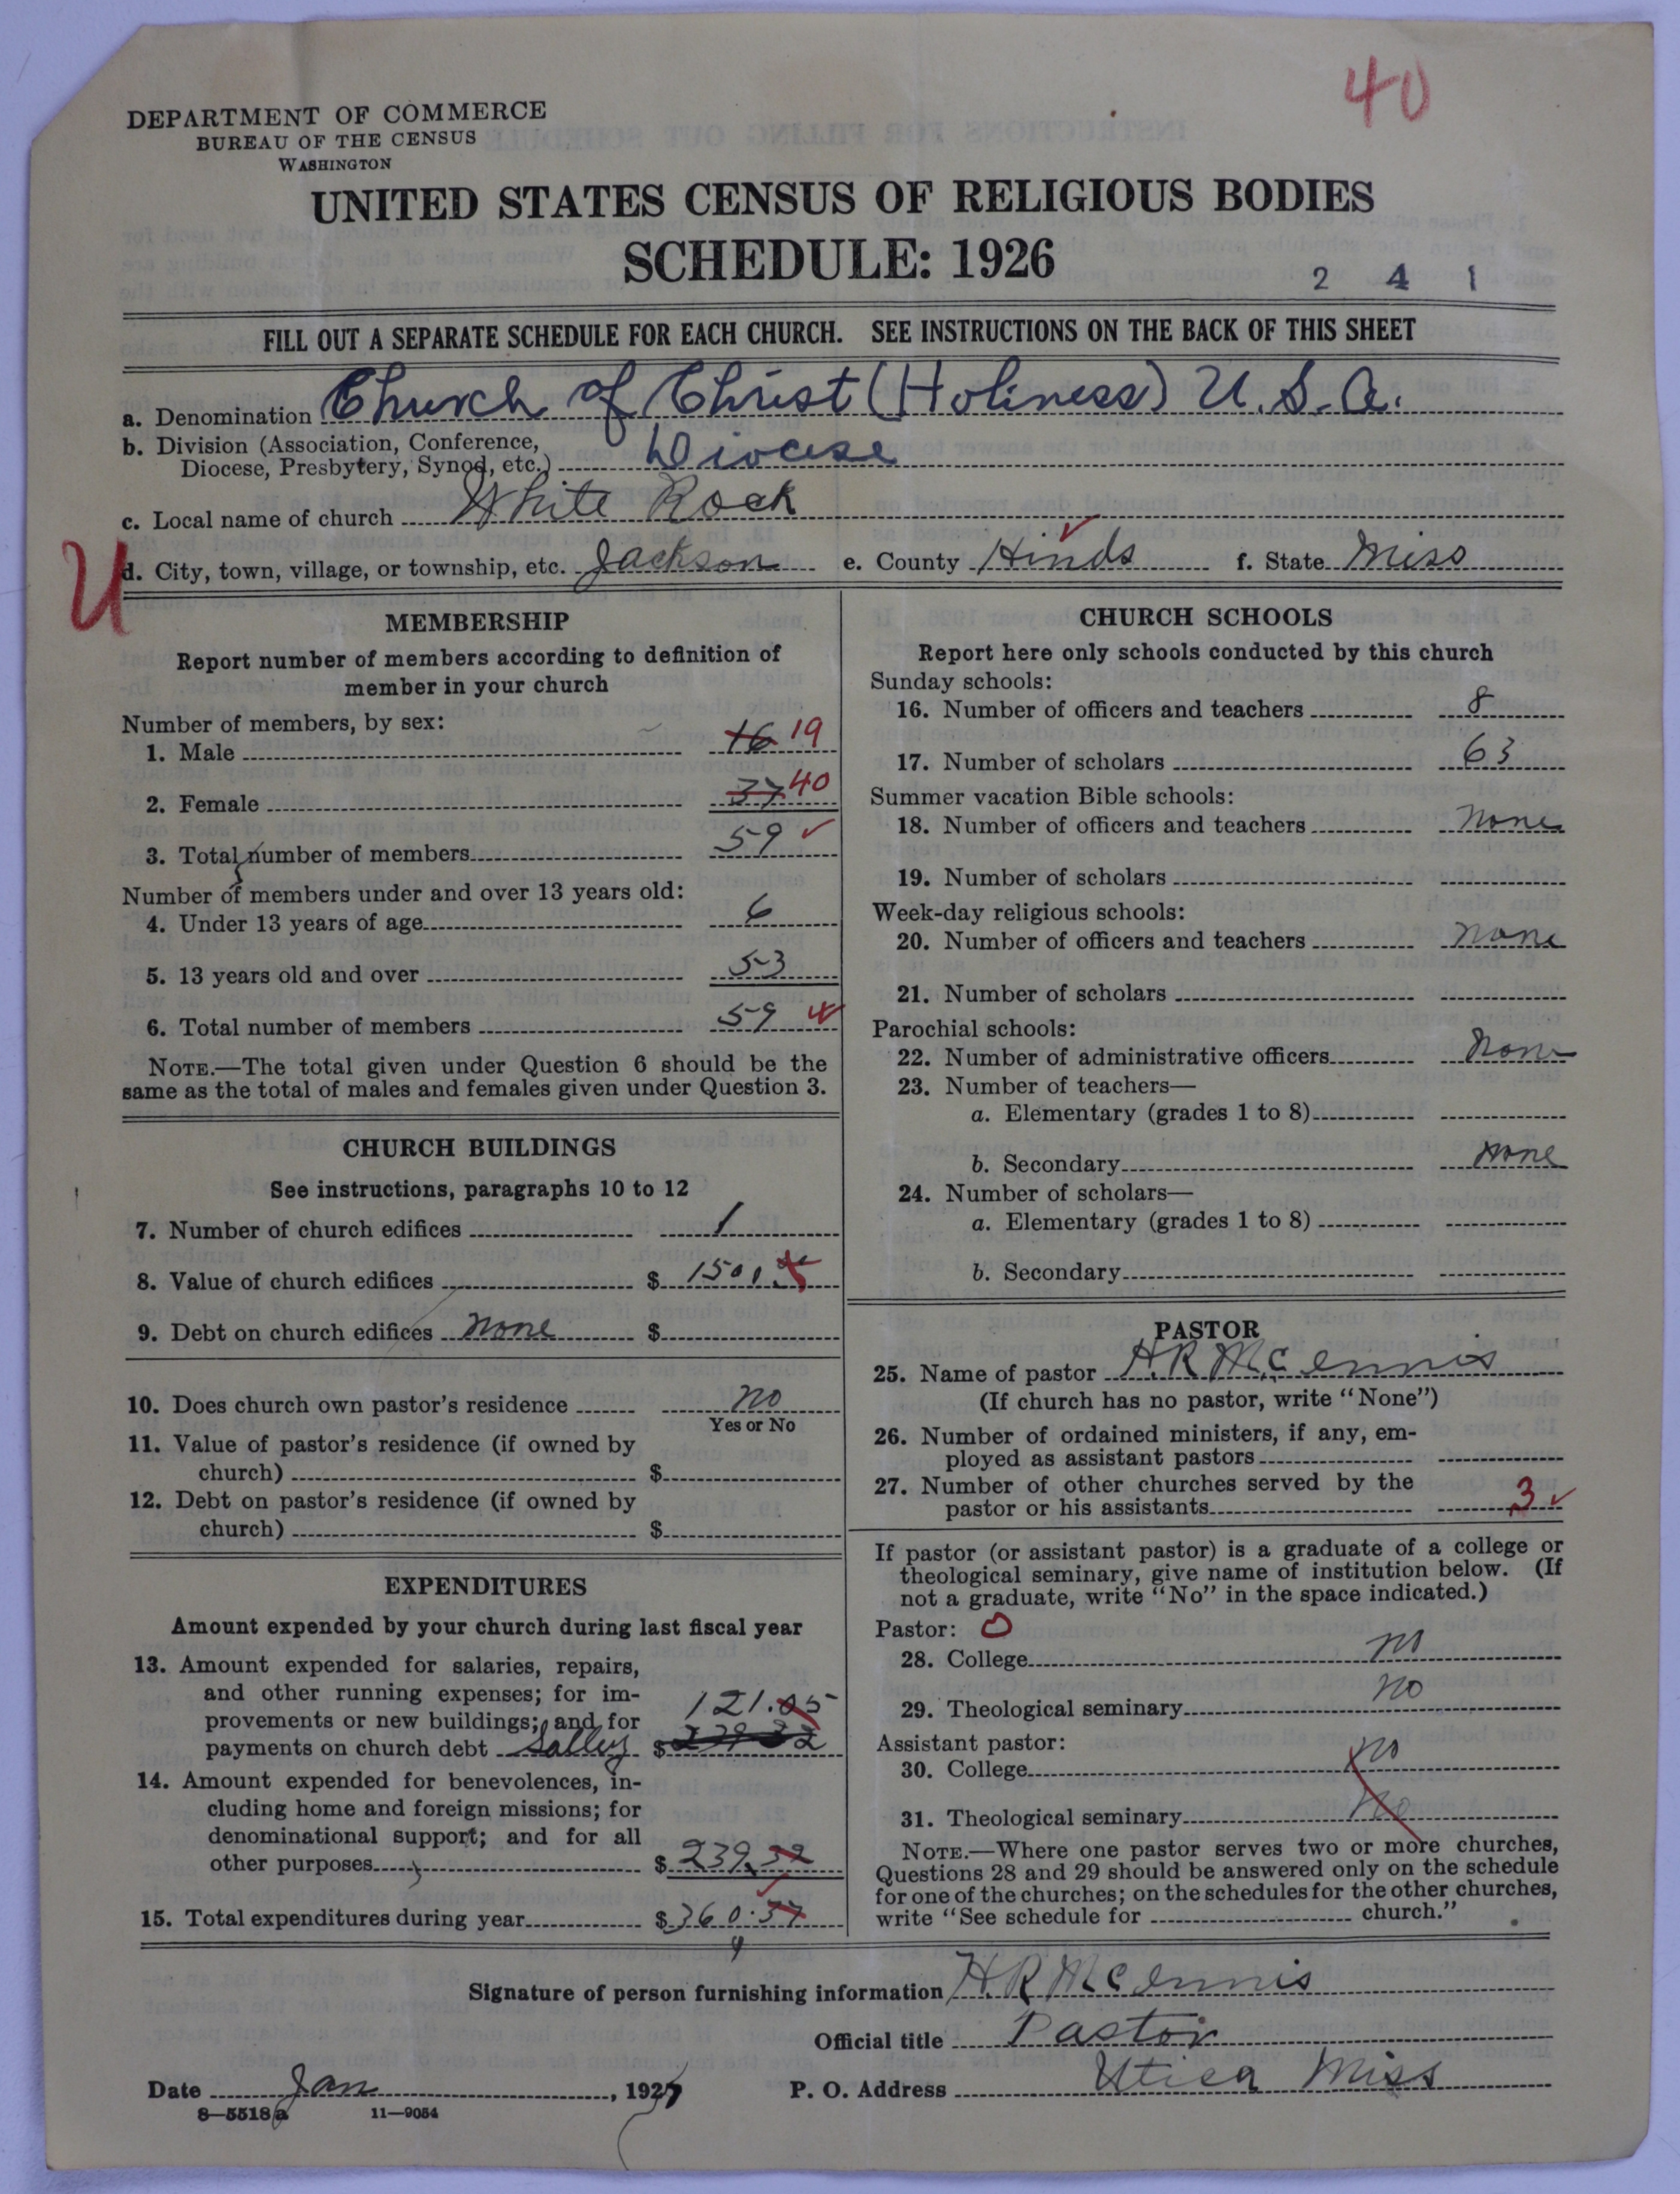 40
DEPARTMENT OF COMMERCE
BUREAU OF THE CENSUS
WASHINGTON
UNITED STATES CENSUS OF RELIGIOUS BODIES
SCHEDULE: 1926
2 4 1
FILL OUT A SEPARATE SCHEDULE FOR EACH CHURCH. SEE INSTRUCTIONS ON THE BACK OF THIS SHEET
a. Denomination Church of Christ (Holiness) U.S.A.
b. Division (Association, Conference,
Diocese, Presbytery, Synod, etc.) Diocese
c. Local name of church White Rock
U
d. City, town, village, or township, etc. Jackson e. County Hinds f. State Miss
MEMBERSHIP
Report number of members according to definition of
member in your church
Number of members, by sex:
1. Male 16 19
2. Female 37 40
3. Total number of members 59
Number of members under and over 13 years old:
4. Under 13 years of age 6
5. 13 years old and over 53
6. Total number of members 59
NOTE.—The total given under Question 6 should be the
same as the total of males and females given under Question 3.
CHURCH BUILDINGS
See instructions, paragraphs 10 to 12
7. Number of church edifices 1
8. Value of church edifices $
9. Debt on church edifices none $
10. Does church own pastor's residence no
Yes or No
11. Value of pastor's residence (if owned by
church) $
12. Debt on pastor's residence (if owned by
church) $
EXPENDITURES
Amount expended by your church during last fiscal year
13. Amount expended for salaries, repairs,
and other running expenses; for im-
provements or new buildings; and for 121.05
payments on church debt $
14. Amount expended for benevolences, in-
cluding home and foreign missions; for
denominational support; and for all
other purposes $ 239.32
15. Total expenditures during year $ 360.37
CHURCH SCHOOLS
Report here only schools conducted by this church
Sunday schools:
16. Number of officers and teachers 8
17. Number of scholars 63
Summer vacation Bible schools:
18. Number of officers and teachers None
19. Number of scholars
Week-day religious schools:
20. Number of officers and teachers None
21. Number of scholars
Parochial schools:
22. Number of administrative officers None
23. Number of teachers—
a. Elementary (grades 1 to 8)
b. Secondary None
24. Number of scholars—
a. Elementary (grades 1 to 8)
b. Secondary
PASTOR
25. Name of pastor H.R McEnnis
(If church has no pastor, write "None")
26. Number of ordained ministers, if any, em-
ployed as assistant pastors
27. Number of other churches served by the
pastor or his assistants 3
If pastor (or assistant pastor) is a graduate of a college or
theological seminary, give name of institution below. (If
not a graduate, write "No" in the space indicated.)
Pastor: 0
28. College no
29. Theological seminary no
Assistant pastor:
30. College no
31. Theological seminary no
NOTE.—Where one pastor serves two or more churches,
Questions 28 and 29 should be answered only on the schedule
for one of the churches; on the schedules for the other churches,
write "See schedule for church."
Signature of person furnishing information H.R McEnnis
Official title Pastor
Date Jan , 1927 P. O. Address Utica Miss
8—5518a 11—9054